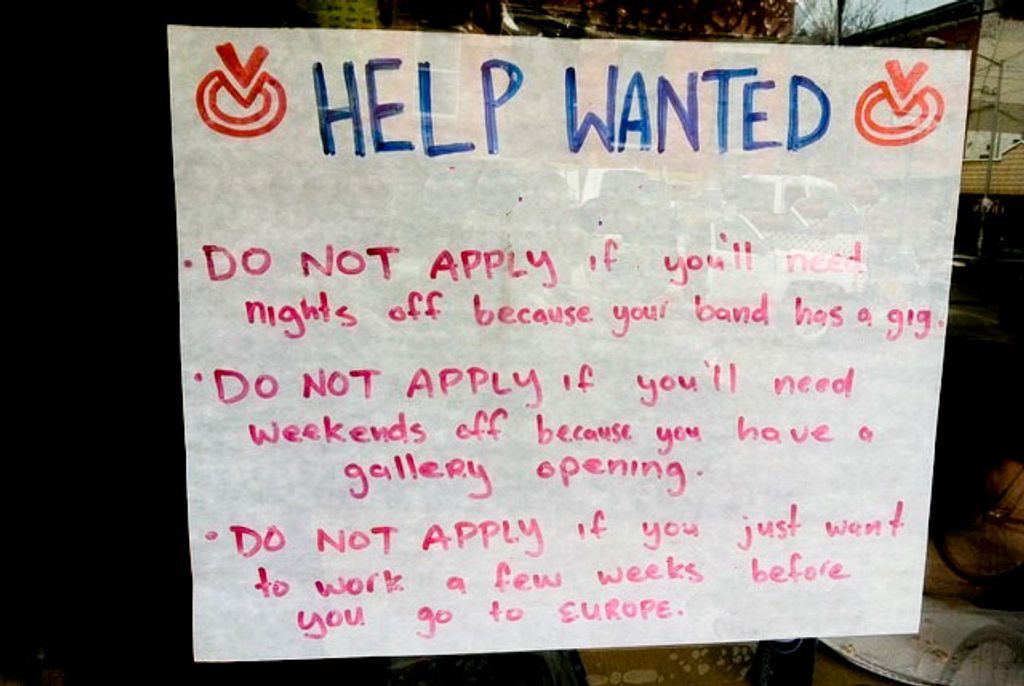 HELP WANTED
• DO NOT APPLY if you'll need
nights off because your band has a gig.
• DO NOT APPLY if you'll need
weekends off because you have a
gallery opening.
• DO NOT APPLY if you just want
to work a few weeks before
you go to EUROPE.